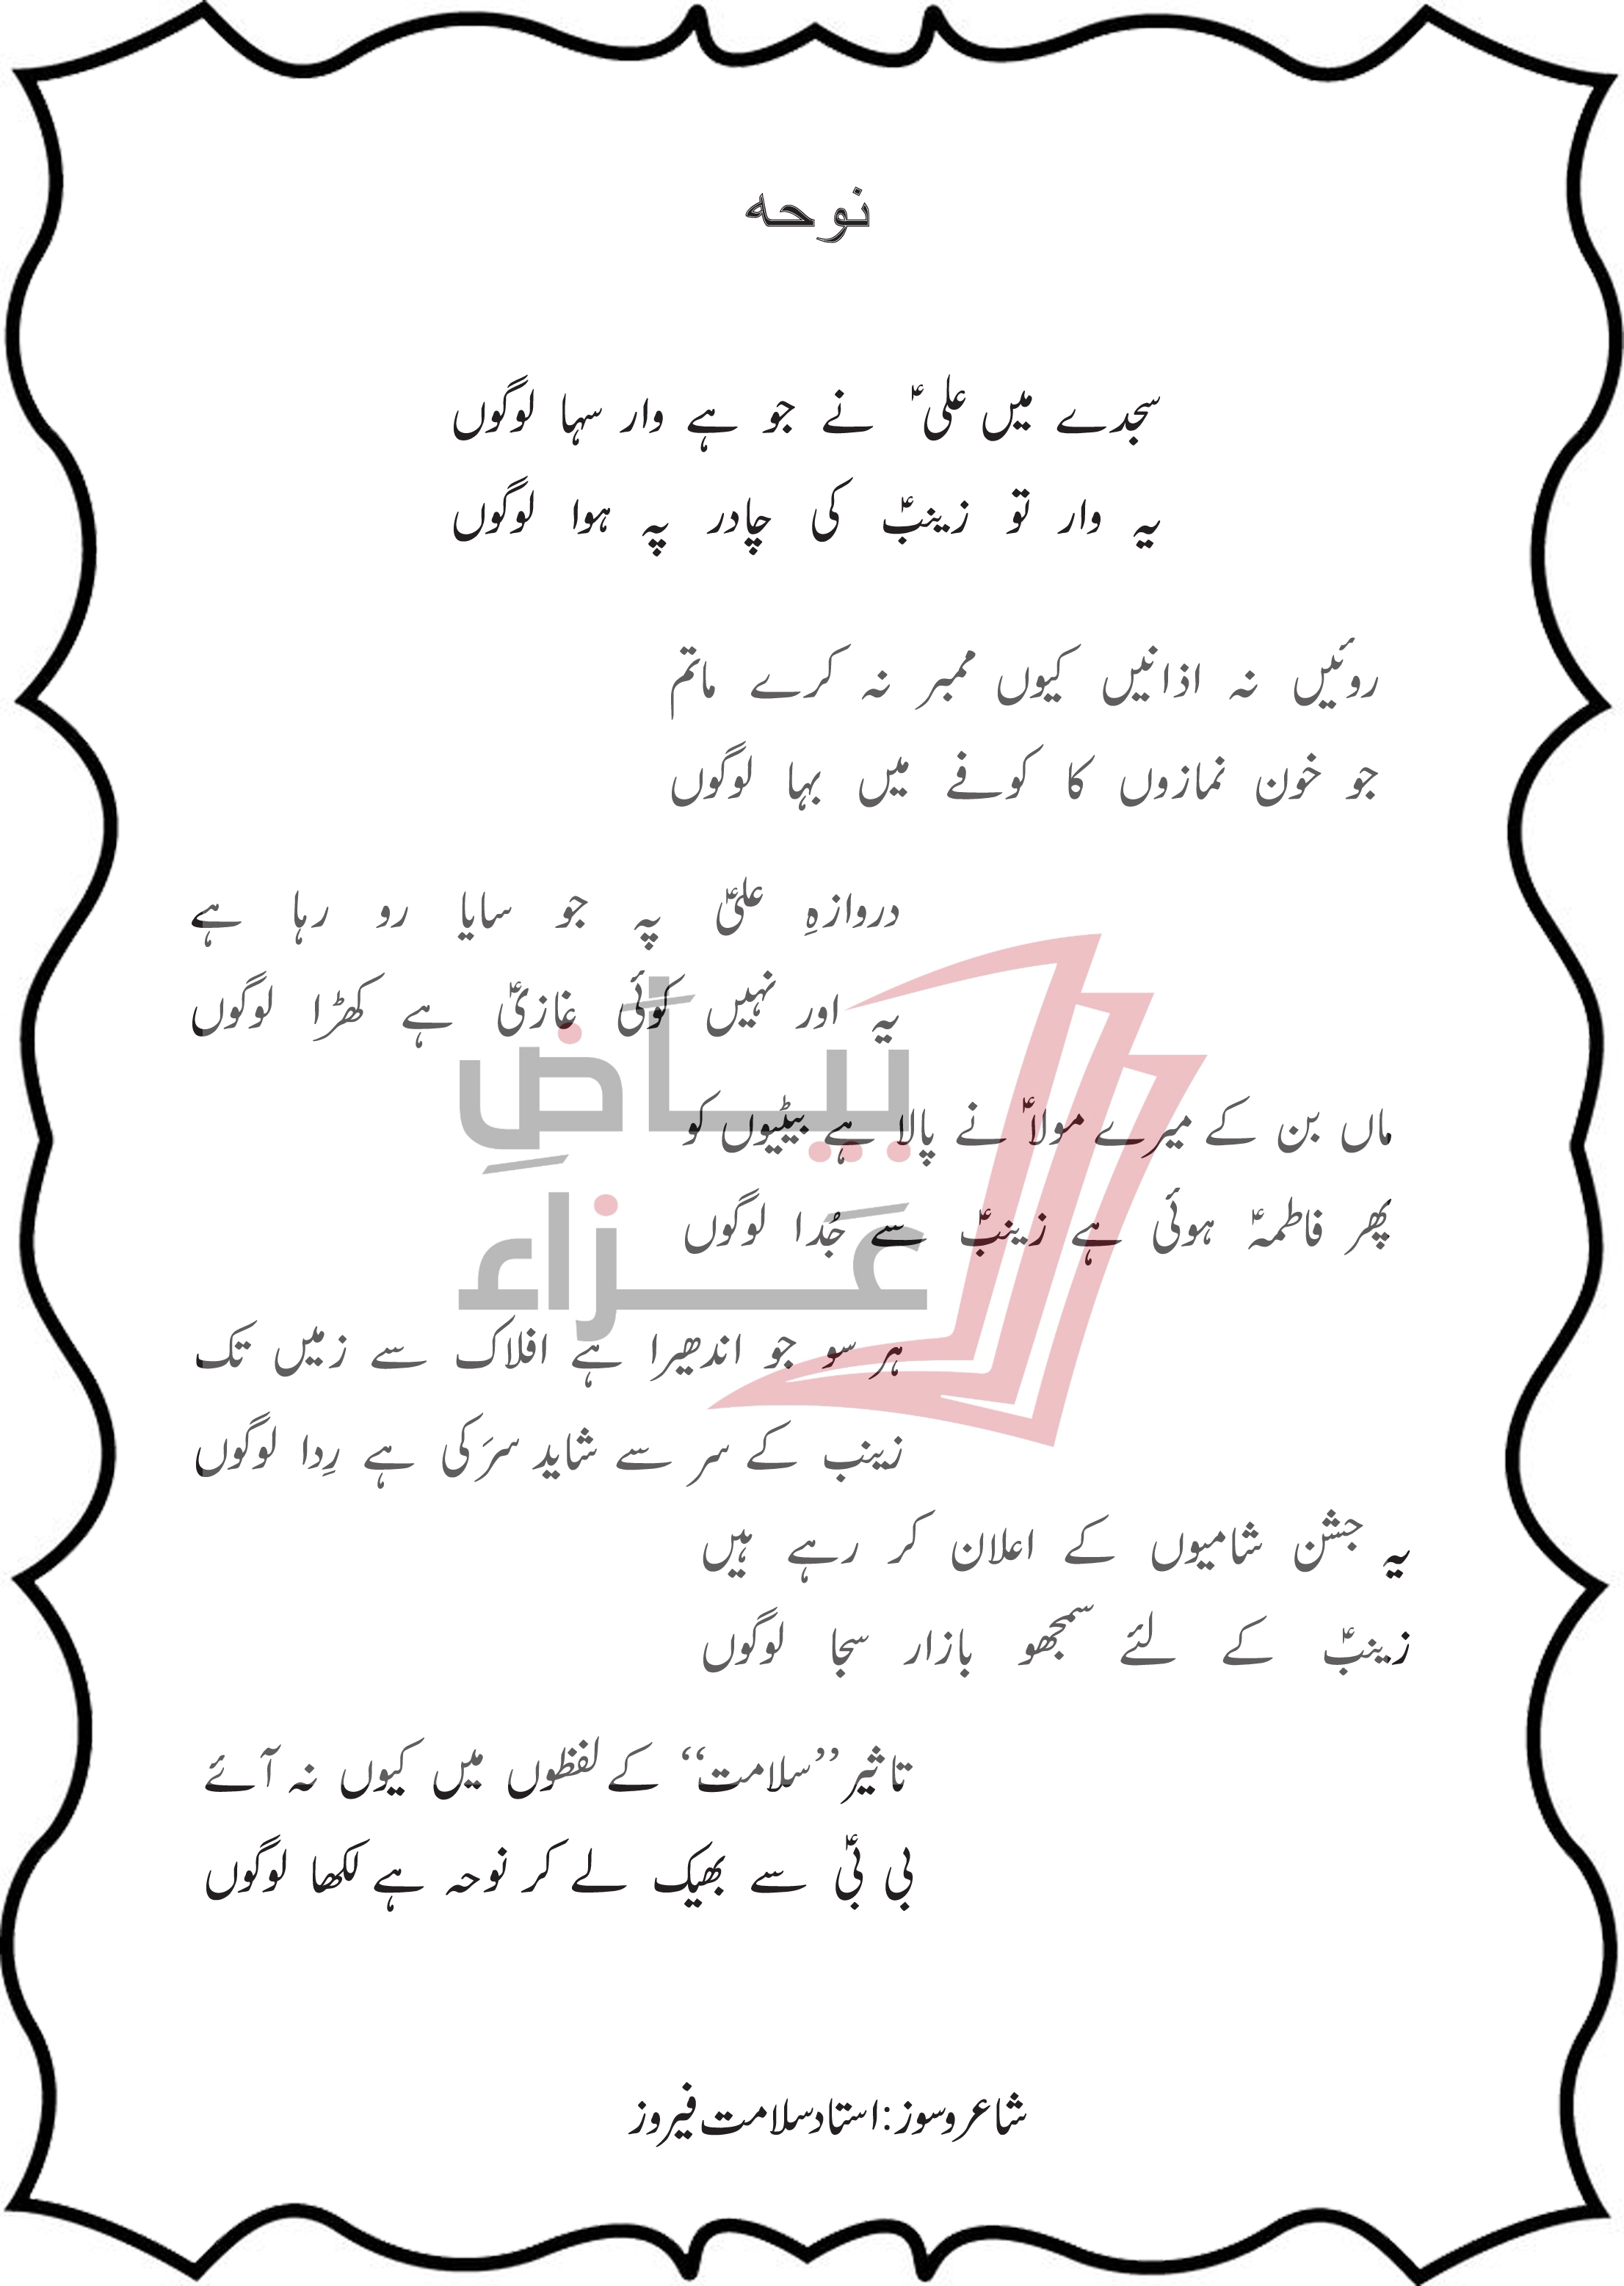 نوحہ
سجدے میں علیؑ نے جو ہے وار سہا لوگوں
یہ وار تو زینبؑ کی چادر پہ ہوا لوگوں
روئیں نہ اذانیں کیوں ممبر نہ کرے ماتم
جو خون نمازوں کا کوفے میں بہا لوگوں
دروازہِ علیؑ پہ جو سایا رو رہا ہے
یہ اور نہیں کوئی غازیؑ ہے کھڑا لوگوں
بیاضِ
ماں بن کے میرے مولاؑ نے پالا ہے بیٹیوں کو
پھر فاطمہؑ ہوئی ہے زینبؑ سے جُدا لوگوں
عَزاءِ
ہر سو جو اندھیرا ہے افلاک سے زمیں تک
زینب کے سر سے شاید سرَکی ہے رِدا لوگوں
یہ جشن شامیوں کے اعلان کر رہے ہیں
زینبؑ کے لئے سمجھو بازار سجا لوگوں
تاثیر ’’سلامت‘‘ کے لفظوں میں کیوں نہ آئے
بی بیؑ سے بھیک لے کر نوحہ ہے لکھا لوگوں
شاعر و سوز: استاد سلامت فیروز